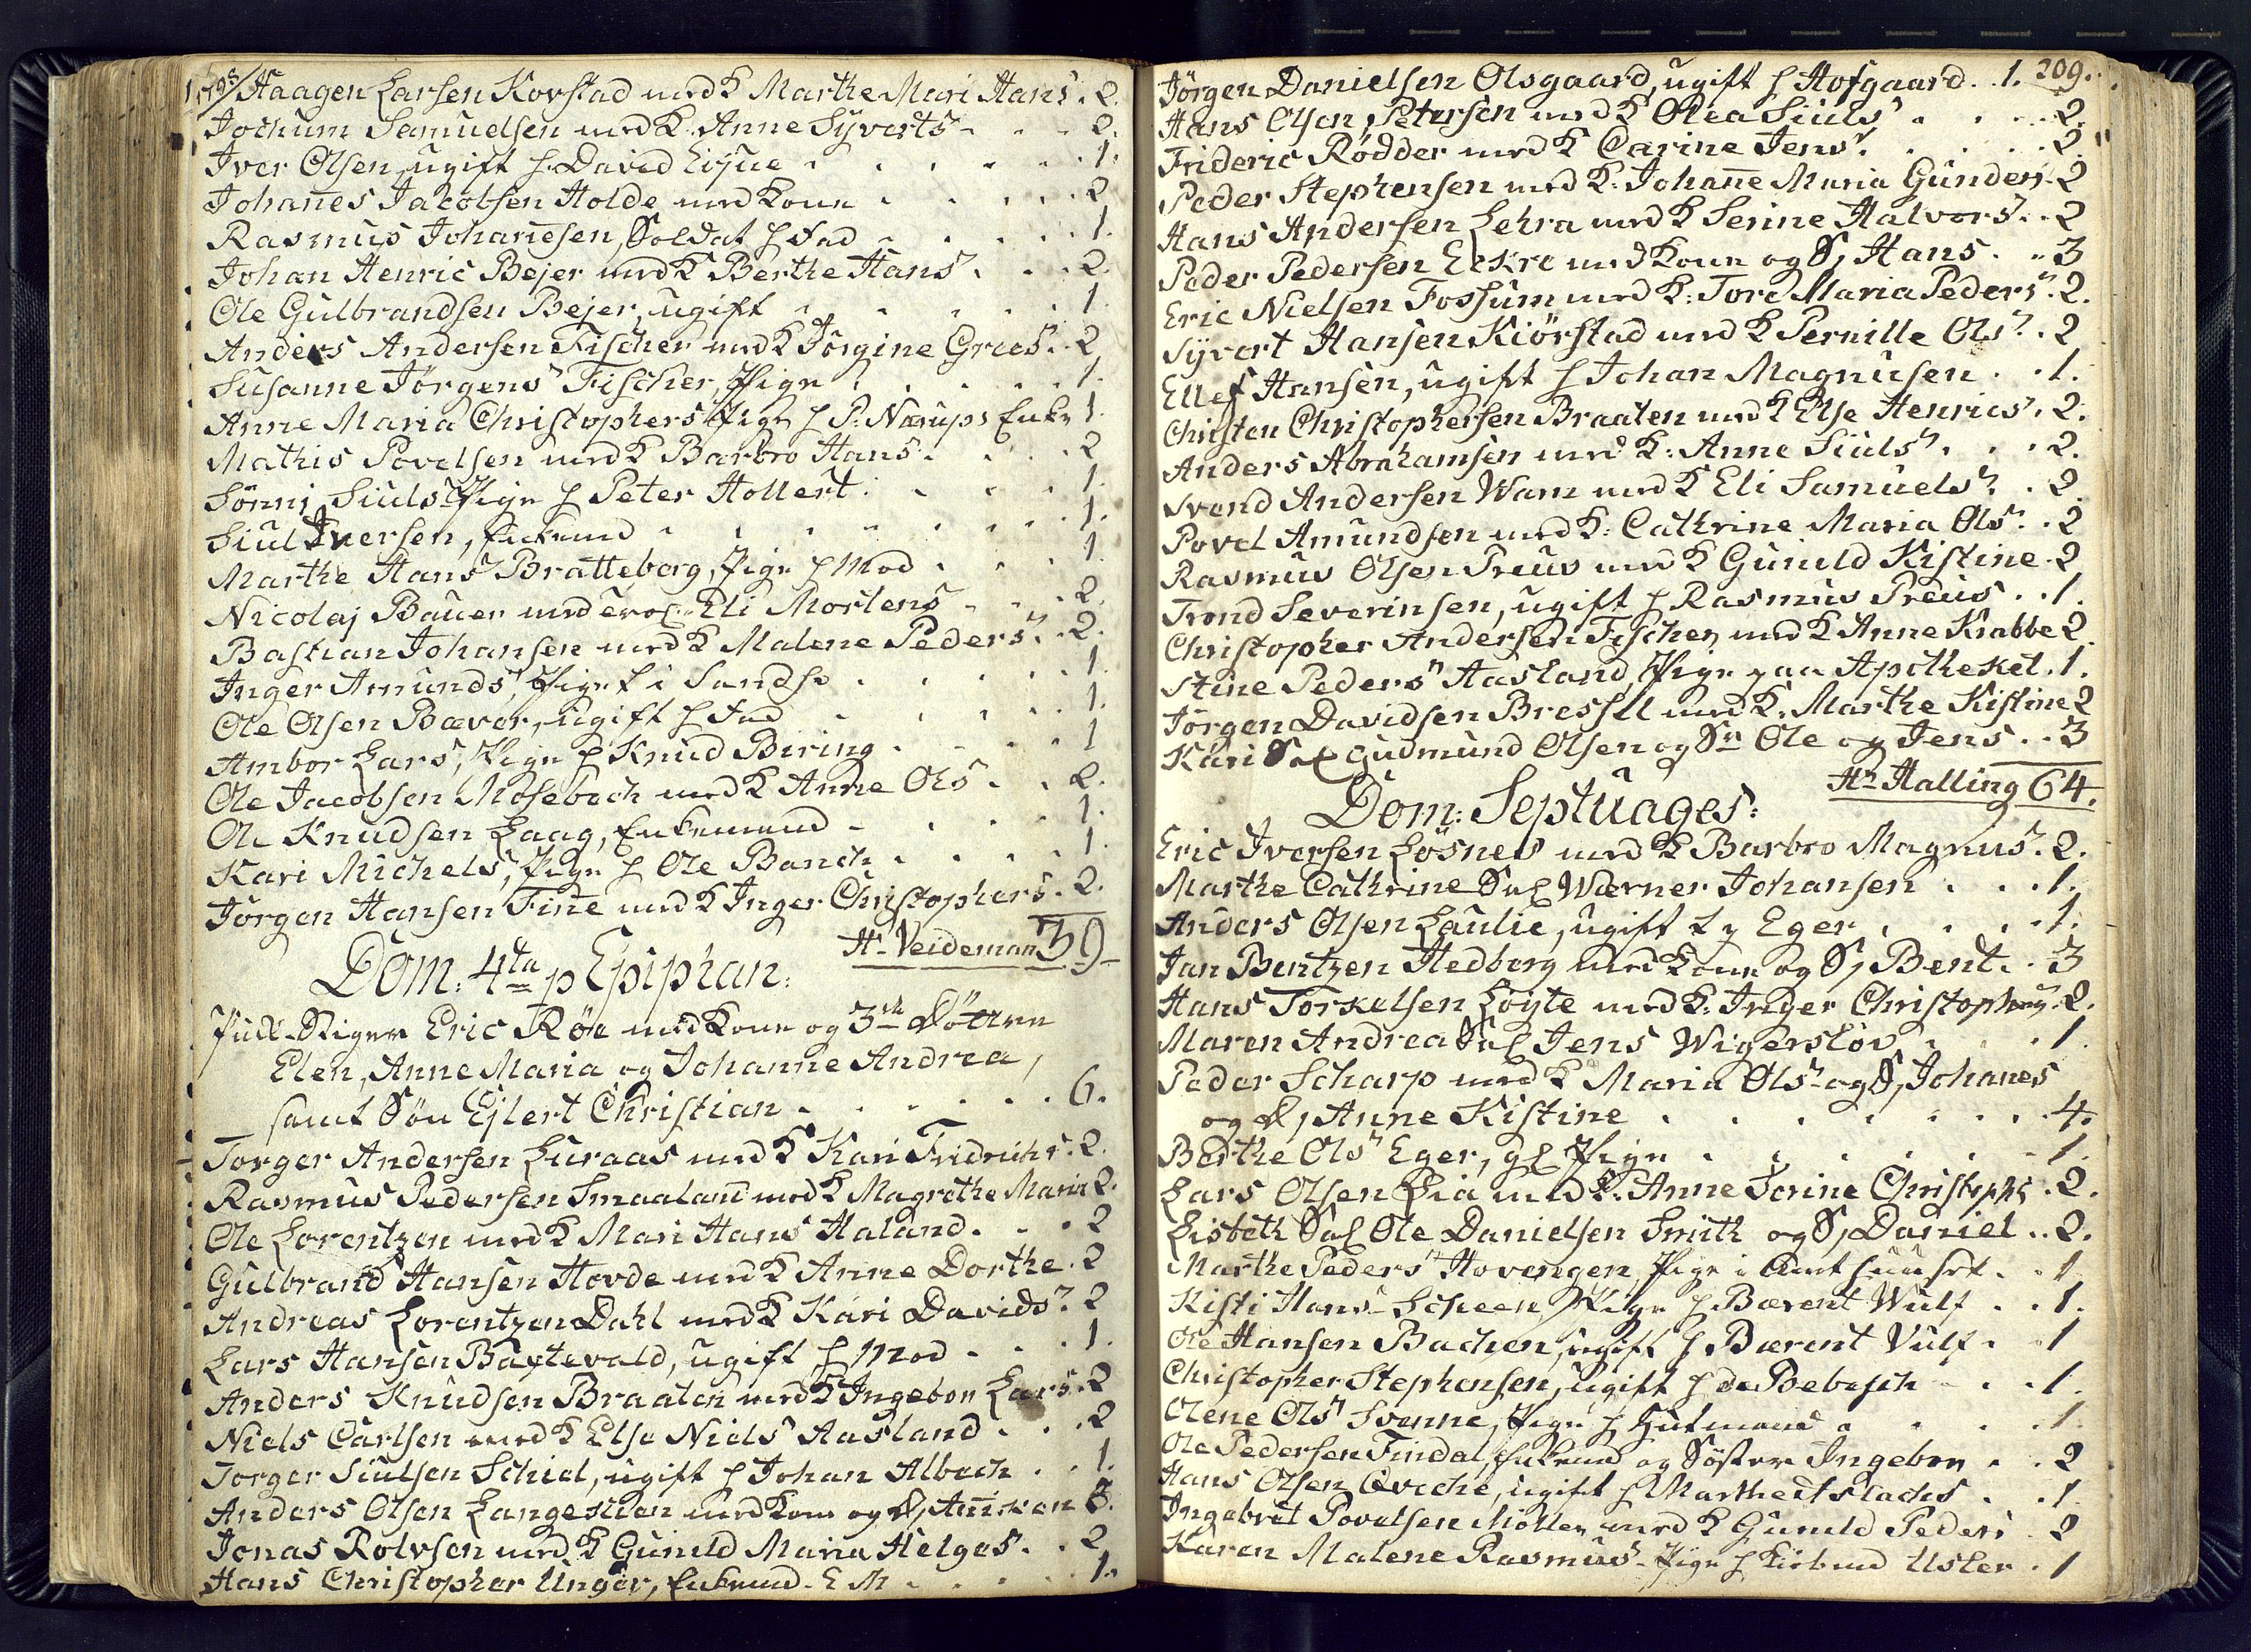 Haagen Larsen Korstad med K Marthe Mari Hans . 2.
Jochum Samuelsen med K. Anne Syverts - . . 2.
Iver Olsen, ugift h. David . . . . 1.
Johañes Jacobsen Holde med Kone . . . . 2
Rasmus Johañesen, Soldat h Fad . . . . 1.
Johan Henric Bejer med K Berthe Hans . . . 2.
Ole Gulbrandsen Bejer, ugift . . . . 1
Anders Andersen Fischer med K Jörgine Grees . 2
Susanne Jörgens Fischer, Pige . . . . 1.
Anne Maria Christophers Pige h P. Narups Enke 1.
Mathis Povelsen med K Barbro Hans . . . 2
Sönni Siuls Pige h Peter Hollert . . . . 1.
Siul Iversen, Enkemand . . . . 1.
Marthe Hans Bratteberg, Pige h Mod . . . 1.
Nicolaj Bauer med Eli Mortens . . . 2.
Bastian Johansen med K Malene Peders . . 2.
Inger Amunds, Pige i Sandsv . . . . 1.
Ole Olsen Bævor, ugift h Fad . . . . 1.
Ambor Lars, Pige h Knud Biring . . . . 1
Ole Jacobsen Mosebech med K Anne Ols . . 2.
Ole Knudsen Laag, Enkemand . . . . 1.
Kari Michels, Pige h Ole Banch . . . . 1.
Jörgen Hansen Fiñe med K Inger Christophers . 2.
Hr Veideman 39
Dom: 4ta p Epiphan:
Eric Röe med Kone og 3de Döttre
Elen, Anne Maria og Johanne Andrea,
samt Sön Ejlert Christian . . . . . 6.
Torger Andersen Luraas med K Kari Fridrichs . 2.
Rasmus Pedersen Smaalañ med K Magrethe Maria 2.
Ole Lorentzen med K Mari Hans Haland . . . 2
Gulbrand Hansen Hovde med K Anne Dorthe . 2
Andreas Lorentzen Dahl med K Kari Davids . 2
Lars Hansen Baytevald, ugift h Mod . . . 1.
Anders Knudsen Braaten med K Ingebor Lars . 2
Niels Carlsen med K Else Niels Aasland . . 2
Torger Siulsen Schiel, ugift h Johan Albech . . 1.
Anders Olsen Langestien med Kone og D, Añiken 3.
Jonas Rolvsen med K Gunild Maria Helges . . 2
Hans Christopher Unger, Enkemd. E M . . . . 1.
Jörgen Danielsen Olsgaard, ugift h Hofgaard . . 1. 209.
Hans Olsen Petersen med K Olea Siuls . . . 2.
Frideric Rödder med K Carine Jens . . . . 2.
Peder Stephensen med K: Johañe Maria Gunders . 2
Hans Andersen Lehra med K Serine Halvors . . 2
Peder Pedersen Eekre med Kone og S, Hans . . 3
Eric Nielsen Fossum med K: Tore Maria Peders . 2.
Syvert Hansen Kiörstad med K Pernille Ols . . 2
Ellef Hansen, ugift h Johan Magnusen . . 1.
Christen Christophersen Braaten med K Else Henrics . 2.
Anders Abrahamsen med K: Anne Siuls . . . 2.
Svend Andersen Wam med K Eli Samuels . . 2
Povel Amundsen med K: Cathrine Maria Ols . . 2
Rasmus Olsen Preus med K Gunild Kistine . 2
Trond Severinsen, ugift h Rasmus Preus . . 1.
Christopher Andersen Fischer med K Anne Krabbe 2
Stine Peders Aasland, Pige paa Apotheket . 1.
Jörgen Davidsen Bressel med K. Marthe Kistine 2
Kari Sal Gudmund Olsen og Sñ Ole og Jens . . 3
Hr Halling 64.
Dom: Septuages:
Eric Iversen Lösnes med K Barbro Magnus . 2.
Marthe Cathrine Sal Wærner Johansen . . . 1.
Anders Olsen Laulie, ugift Eger . . . . 1.
Jan Bentzen Hedberg med Kone og S, Bent . . 3
Hans Torkelsen Löyte med K: Inger Christophers . 2.
Maren Andrea Sal Jens Wigerslöv . . . 1.
Peder Scharp med K Maria Ols og S, Johanes
og D, Anne Kistine . . . . . . 4.
Berthe Ols Eger, gl Pige . . . . . 1.
Lars Olsen Lia med K. Anne Torine Christophs . 2.
Lisbeth Sal Ole Danielsen Smith og S, Daniel . . 2.
Marthe Peders Hovengen, Pige i Amthuuset . . 1.
Kisti Hans Scheen, Pige h Bærent Wulf . . 1.
Ole Hansen Bachen, ugift h Bærent Vulf . . 1
Christopher Stephensen, ugift h de Boebesch . . . 1.
Olene Ols Svenne, Pige h Gutmand . . . 1.
Ole Pedersen Findal, Enkemd og Söster Ingebor . . 2
Hans Olsen Qveche, ugift h Marthe . . 1.
Ingebret Povelsen Möller med K Gunild Peders . 2
Karen Malene Rasmus Pige h Usler . 1